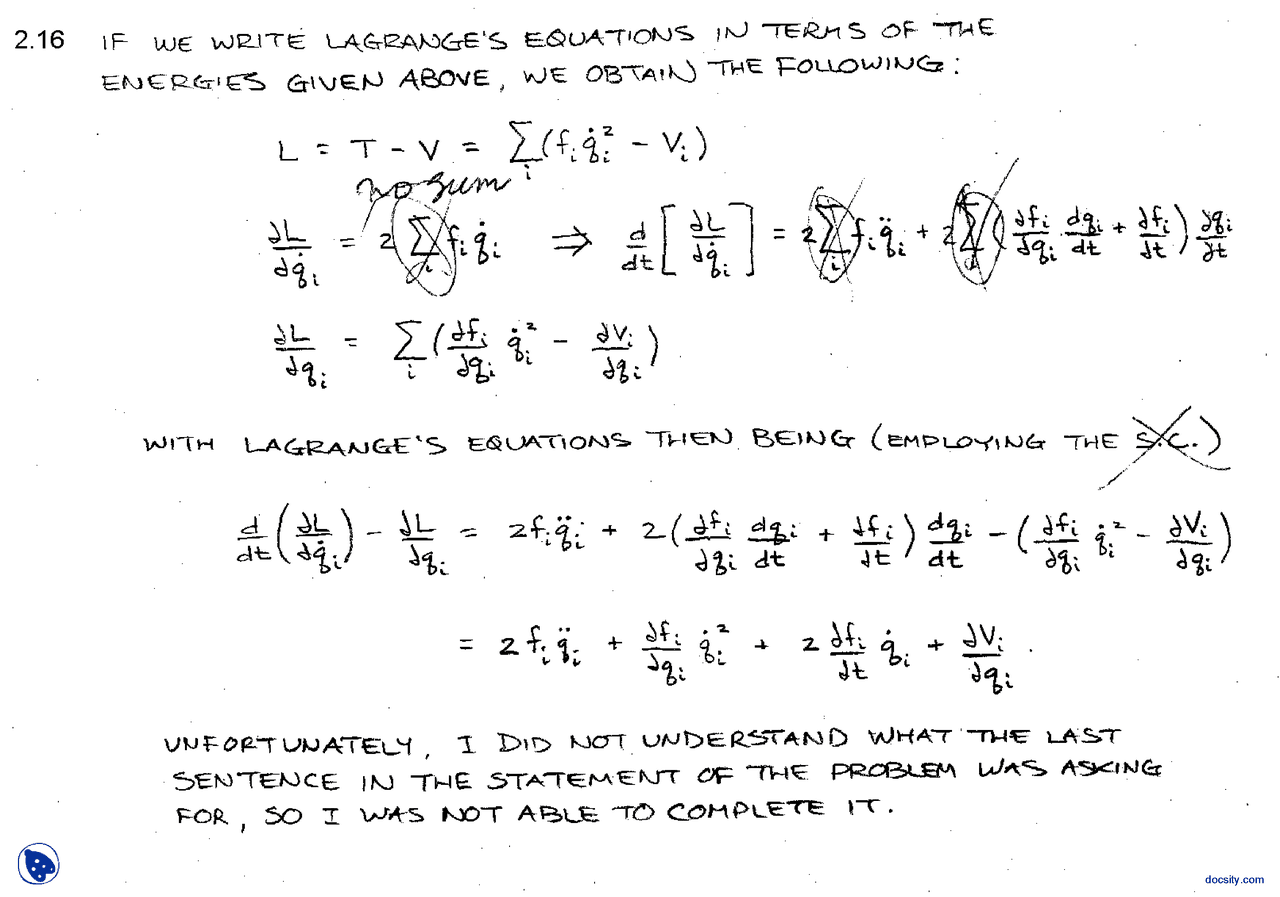 2.16 IF WE WRITE LAGRANGE'S EQUATIONS IN TERMS OF THE
ENERGIES GIVEN ABOVE, WE OBTAIN THE FOLLOWING:
L = T - V = ∑_i (f_i q̇_i² - V_i)
no sum
∂L/∂q̇_i = 2 ∑_i f_i q̇_i ⇒ d/dt [∂L/∂q̇_i] = 2 ∑_i f_i q̈_i + 2 ∑_i (∂f_i/∂q_i dq_i/dt + ∂f_i/∂t) ∂q_i/∂t
∂L/∂q_i = ∑_i (∂f_i/∂q_i q̇_i² - ∂V_i/∂q_i)
WITH LAGRANGE'S EQUATIONS THEN BEING (EMPLOYING THE S.C.)
d/dt (∂L/∂q̇_i) - ∂L/∂q_i = 2f_i q̈_i + 2(∂f_i/∂q_i dq_i/dt + ∂f_i/∂t) dq_i/dt - (∂f_i/∂q_i q̇_i² - ∂V_i/∂q_i)
= 2 f_i q̈_i + ∂f_i/∂q_i q̇_i² + 2 ∂f_i/∂t q̇_i + ∂V_i/∂q_i .
UNFORTUNATELY, I DID NOT UNDERSTAND WHAT THE LAST
SENTENCE IN THE STATEMENT OF THE PROBLEM WAS ASKING
FOR, SO I WAS NOT ABLE TO COMPLETE IT.
docsity.com